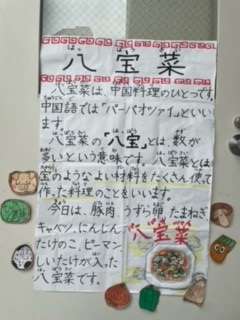 八宝菜
八宝菜は、中国料理のひとつです。
中国語では「パーパオツァイ」といい
ます。
八宝菜の「八宝」とは、数が
多いという意味です。八宝菜とは
宝のようなよい材料をたくさん使って
作った料理のことをいいます。
今日は、豚肉 うずら卵 たまねぎ
キャベツ、にんじん
たけのこ、ピーマン、
しいたけが入った
八宝菜です。
八宝菜